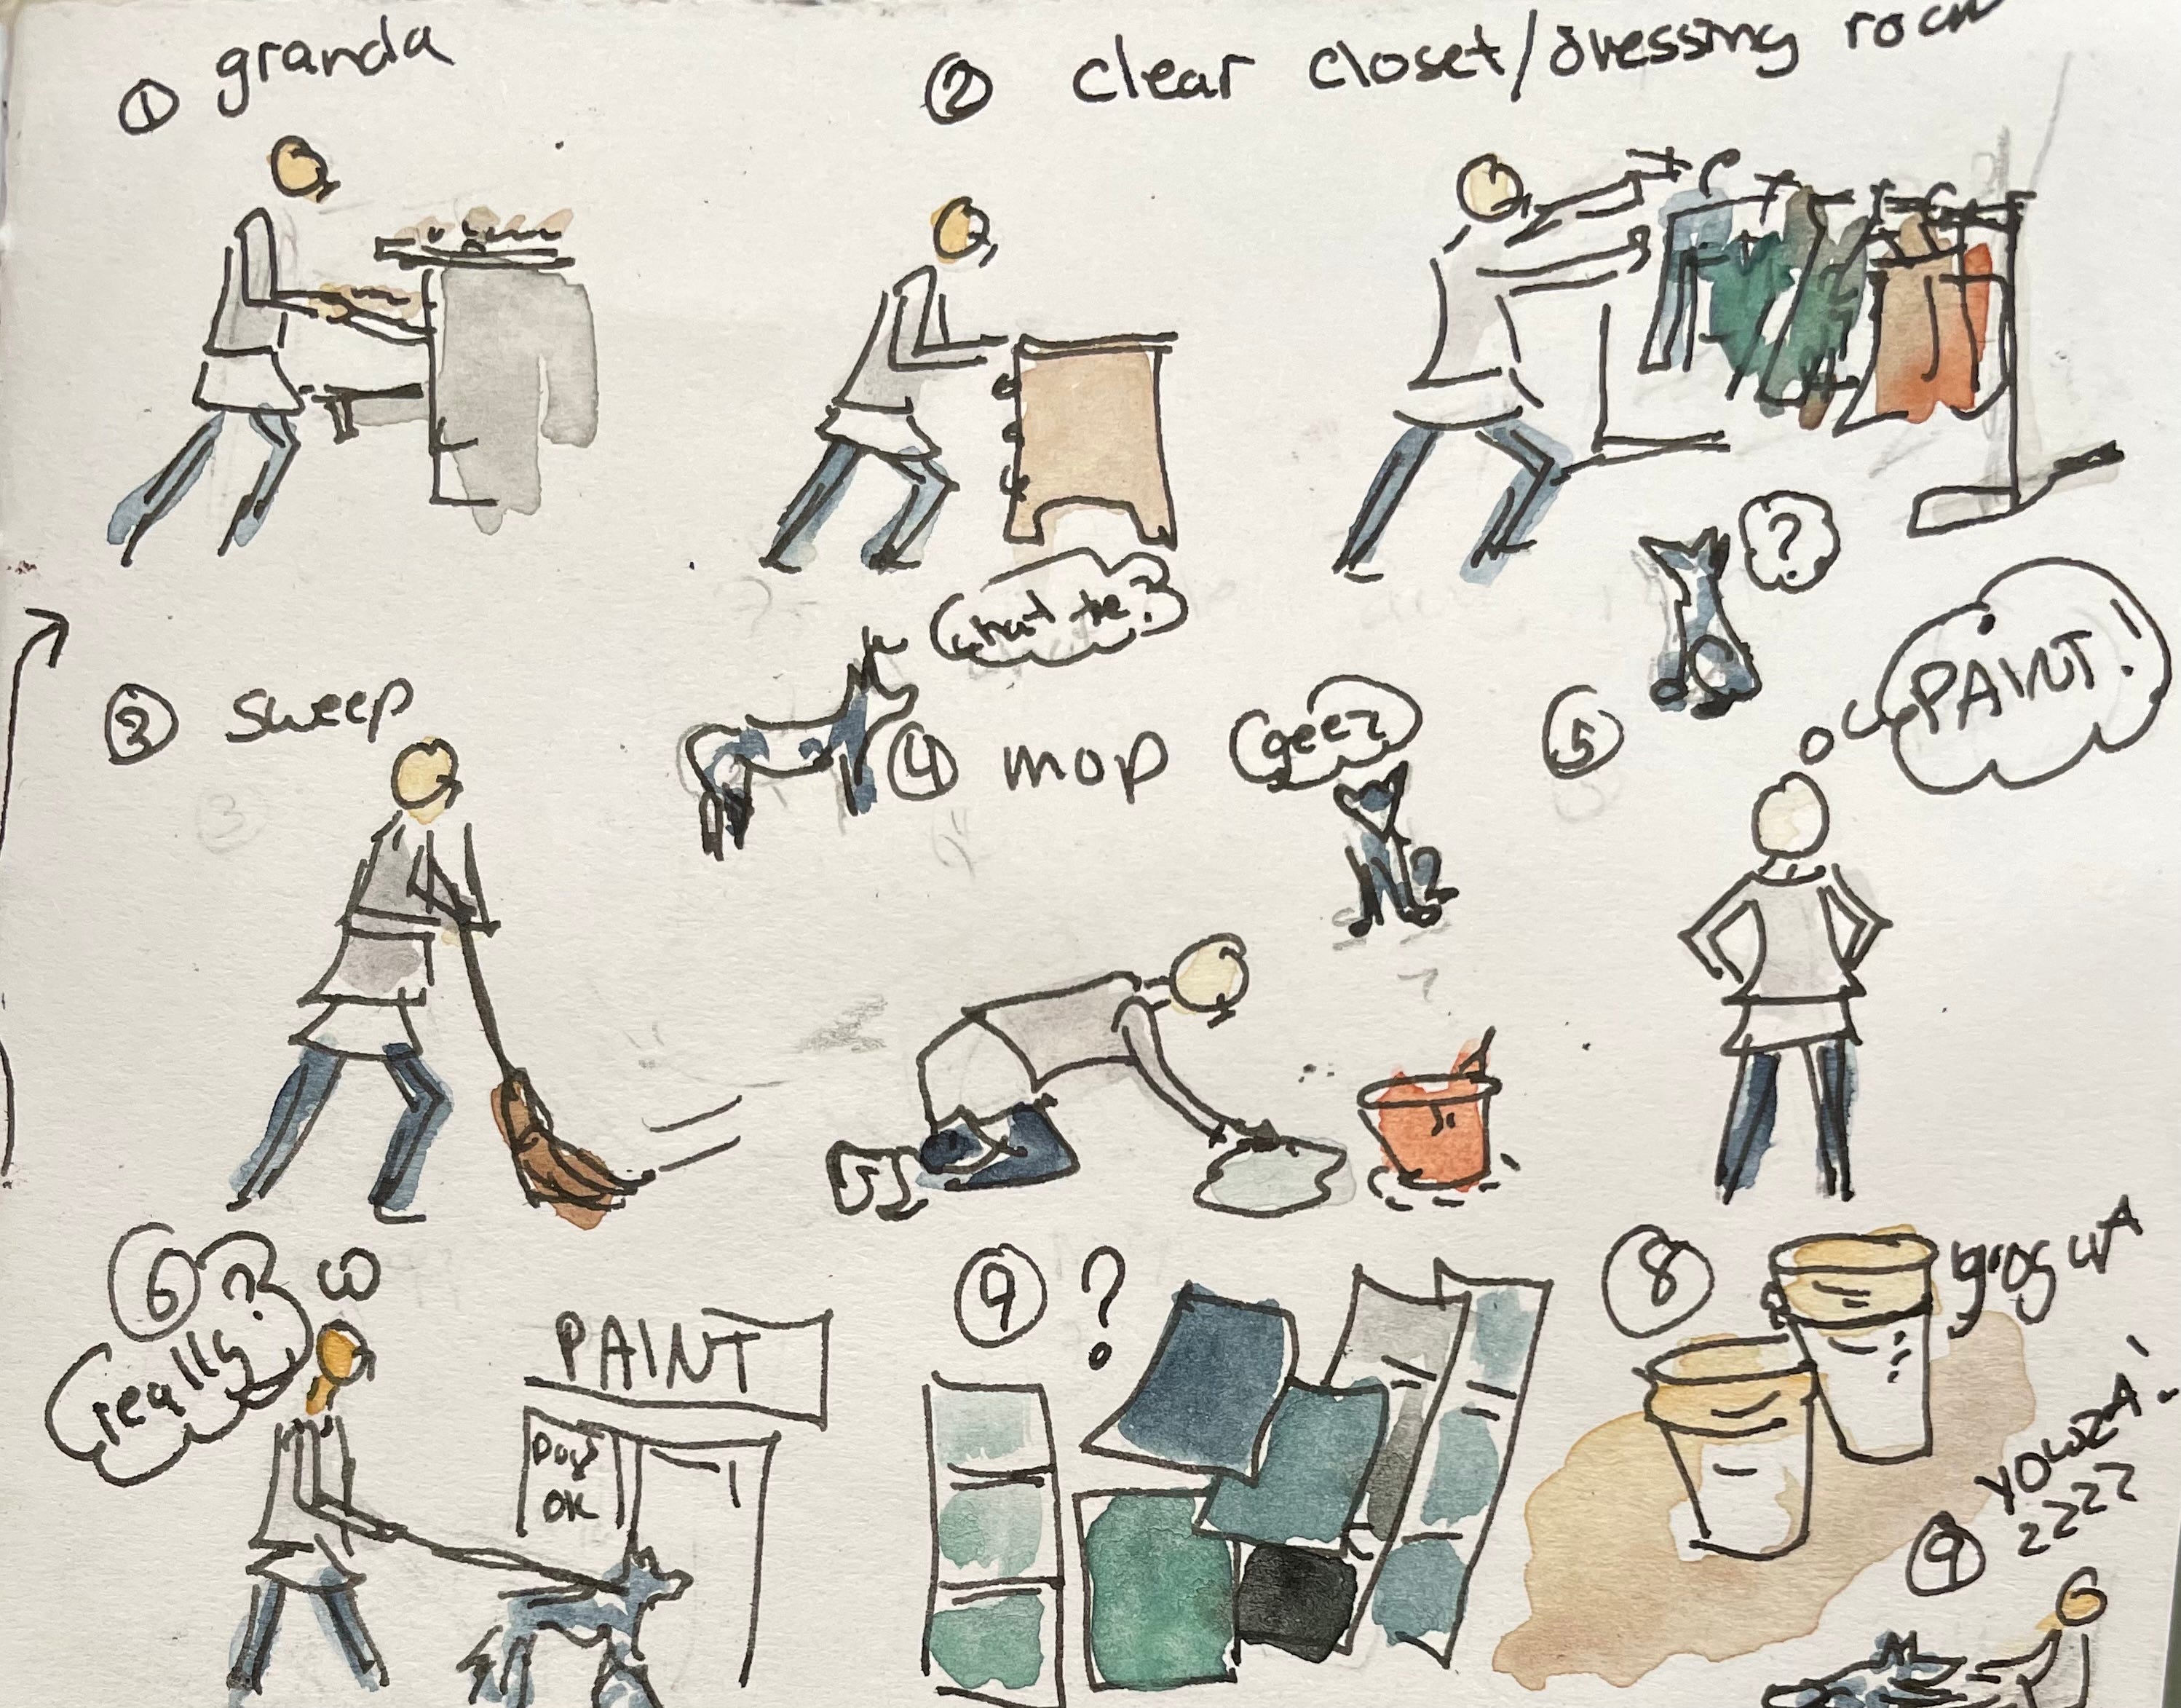 ① granda
② clear closet/dressing room
?
what the?
③ sweep
④ mop
geez
⑤ PAINT!
⑥
really?
PAINT
DOGS
OK
⑨ ?
⑧
YOWZA!
zzzz
⑨